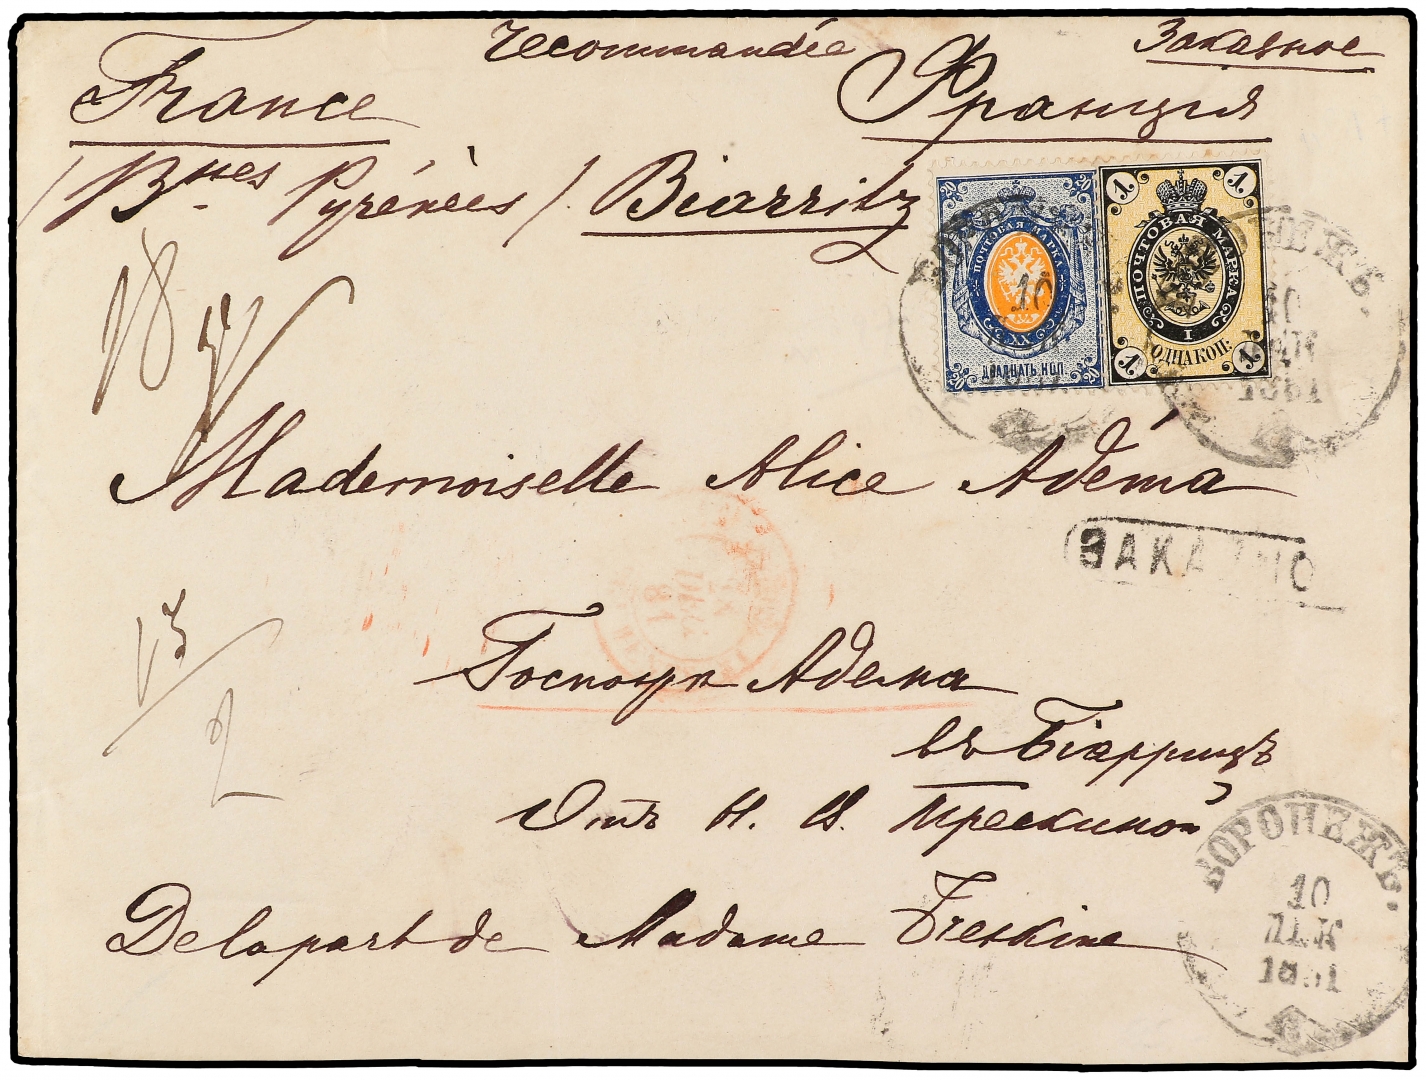 recommandée Заказное
France Франція
/ Bses Pyrénées / Biarritz
20 20
ПОЧТОВАЯ МАРКА
XX
ДВАДЦАТЬ КОП.
20 20
1. 1.
ПОЧТОВАЯ МАРКА
I
ОДНА КОП:
1. 1.
ВОРОНЕЖЪ.
10
ДЕК
1881
Mademoiselle Alice Adéma
ЗАКАЗНО
18
DEC
81
Госпожѣ Адема
въ Біаррицъ
Отъ Н. И. Трескиной
De la part de Madame Treskine
ВОРОНЕЖЪ.
10
ДЕК
1881